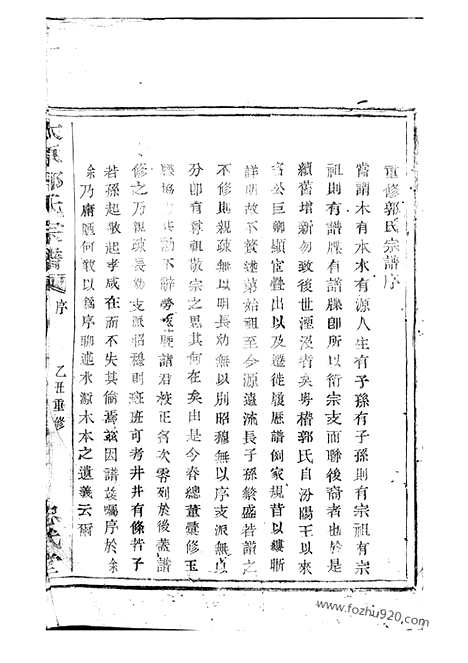 重修郭氏宗譜序
嘗謂木有本水有源人生有子孫有子孫則有宗祖有宗
祖則有譜牒有譜牒卽所以衍宗支而聯後裔者也於是
續舊增新勿致後世湮沒者矣粤稽郭氏自汾陽王以來
名公巨卿顯宦疊出以及遷徙履歷譜例家規昔以縷晰
詳明故不贅述第始祖至今源遠流長子孫繁盛若譜之
不修則親疎無以明長幼無以別昭穆無以序支派無
分卽有尊祖敬宗之思其何在矣由是今春總董彙修玉
協 其 不辭勞 諸君校正名次零列於後蓋譜
修之乃親疎長幼支派昭穆則班班可考井井有條皆子
若孫起敬起孝咸在而不失其倫焉茲因譜竣囑序於余
余乃庸陋何敢以爲序聊述水源木本之遺義云爾
太原郭氏宗譜
序
乙丑重修
堂
www.fozhu920.com